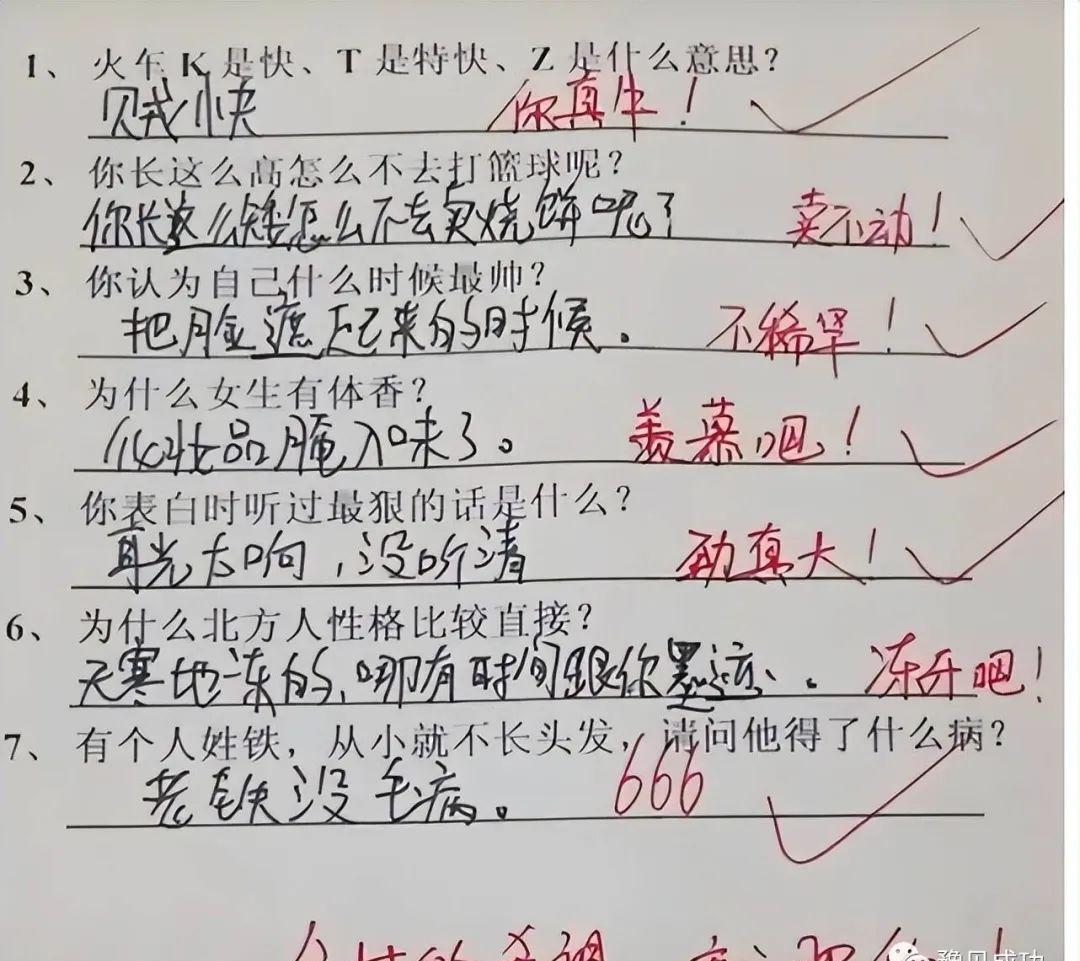 1、火车 K 是快、T 是特快、Z 是什么意思？
贼快 你真牛！
2、你长这么高怎么不去打篮球呢？
你长这么矮怎么不去卖烧饼呢？ 卖不动！
3、你认为自己什么时候最帅？
把脸遮起来的时候。 不稀罕！
4、为什么女生有体香？
化妆品腌入味了。 羡慕吧！
5、你表白时听过最狠的话是什么？
耳光太响，没听清 劲真大！
6、为什么北方人性格比较直接？
天寒地冻的，哪有时间跟你墨迹。 冻牙吧！
7、有个人姓铁，从小就不长头发，请问他得了什么病？
老铁没毛病。 666
豫见成功